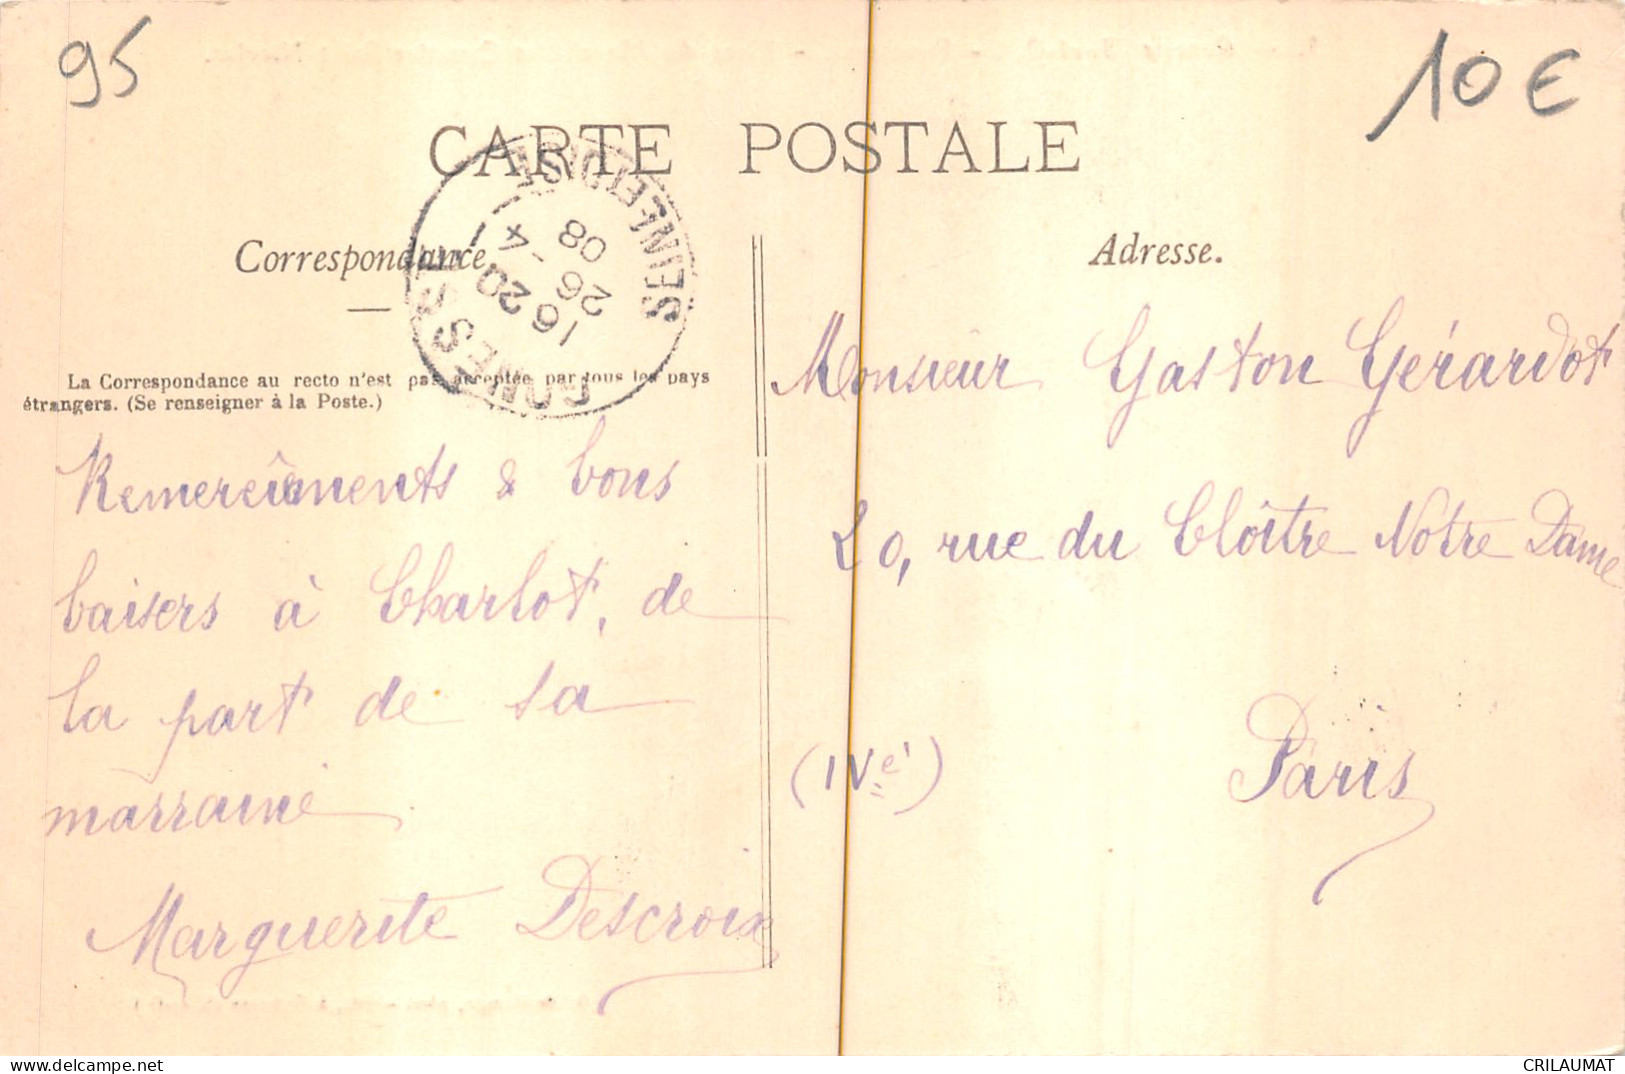 95
10 €
CARTE POSTALE
Correspondance
Adresse.
SEINE-ET-OISE
16 20
26 - 4
08
La Correspondance au recto n'est pas acceptée par tous les pays
étrangers. (Se renseigner à la Poste.)
Remerciements & bons
baisers à Charlot, de
la part de sa
marraine
Marguerite Descroix
Monsieur Gaston Gérardot
20, rue du Cloître Notre Dame
(IVe)
Paris
CRILAUMAT